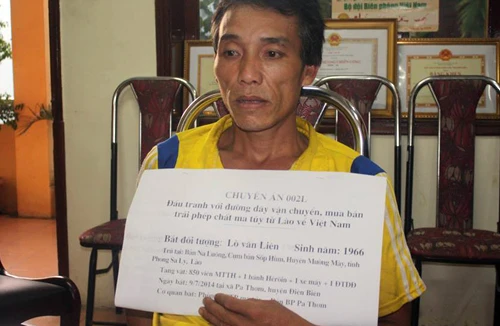 Bộ đội Biên phòng Việt Nam
CHUYÊN ÁN 002L
Đấu tranh với đường dây vận chuyển, mua bán
trái phép chất ma túy từ Lào về Việt Nam
Bắt đối tượng: Lò văn Liên Sinh năm: 1966
Trú tại: Bản Na Luông, Cụm bản Sốp Hùn, Huyện Mường Mày, tỉnh
Phong Sa Ly, Lào
Tang vật: 850 viên MTTH + 1 bánh Heroin + 1 xe máy + 1 ĐTDĐ
Ngày bắt: 9/7/2014 tại xã Pa Thơm, huyện Điện Biên
Cơ quan bắt: BP Pa Thơm